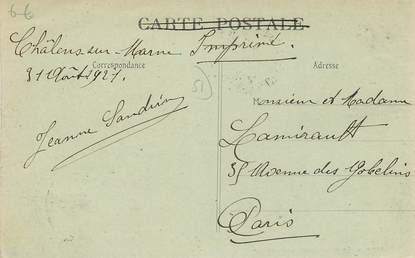 66
CARTE POSTALE
Châlons-sur-Marne Imprimé.
Correspondance
Adresse
31 Août 1921.
Monsieur et Madame
Jeanne Sandrin
Lamirault
35 Avenue des Gobelins
Paris